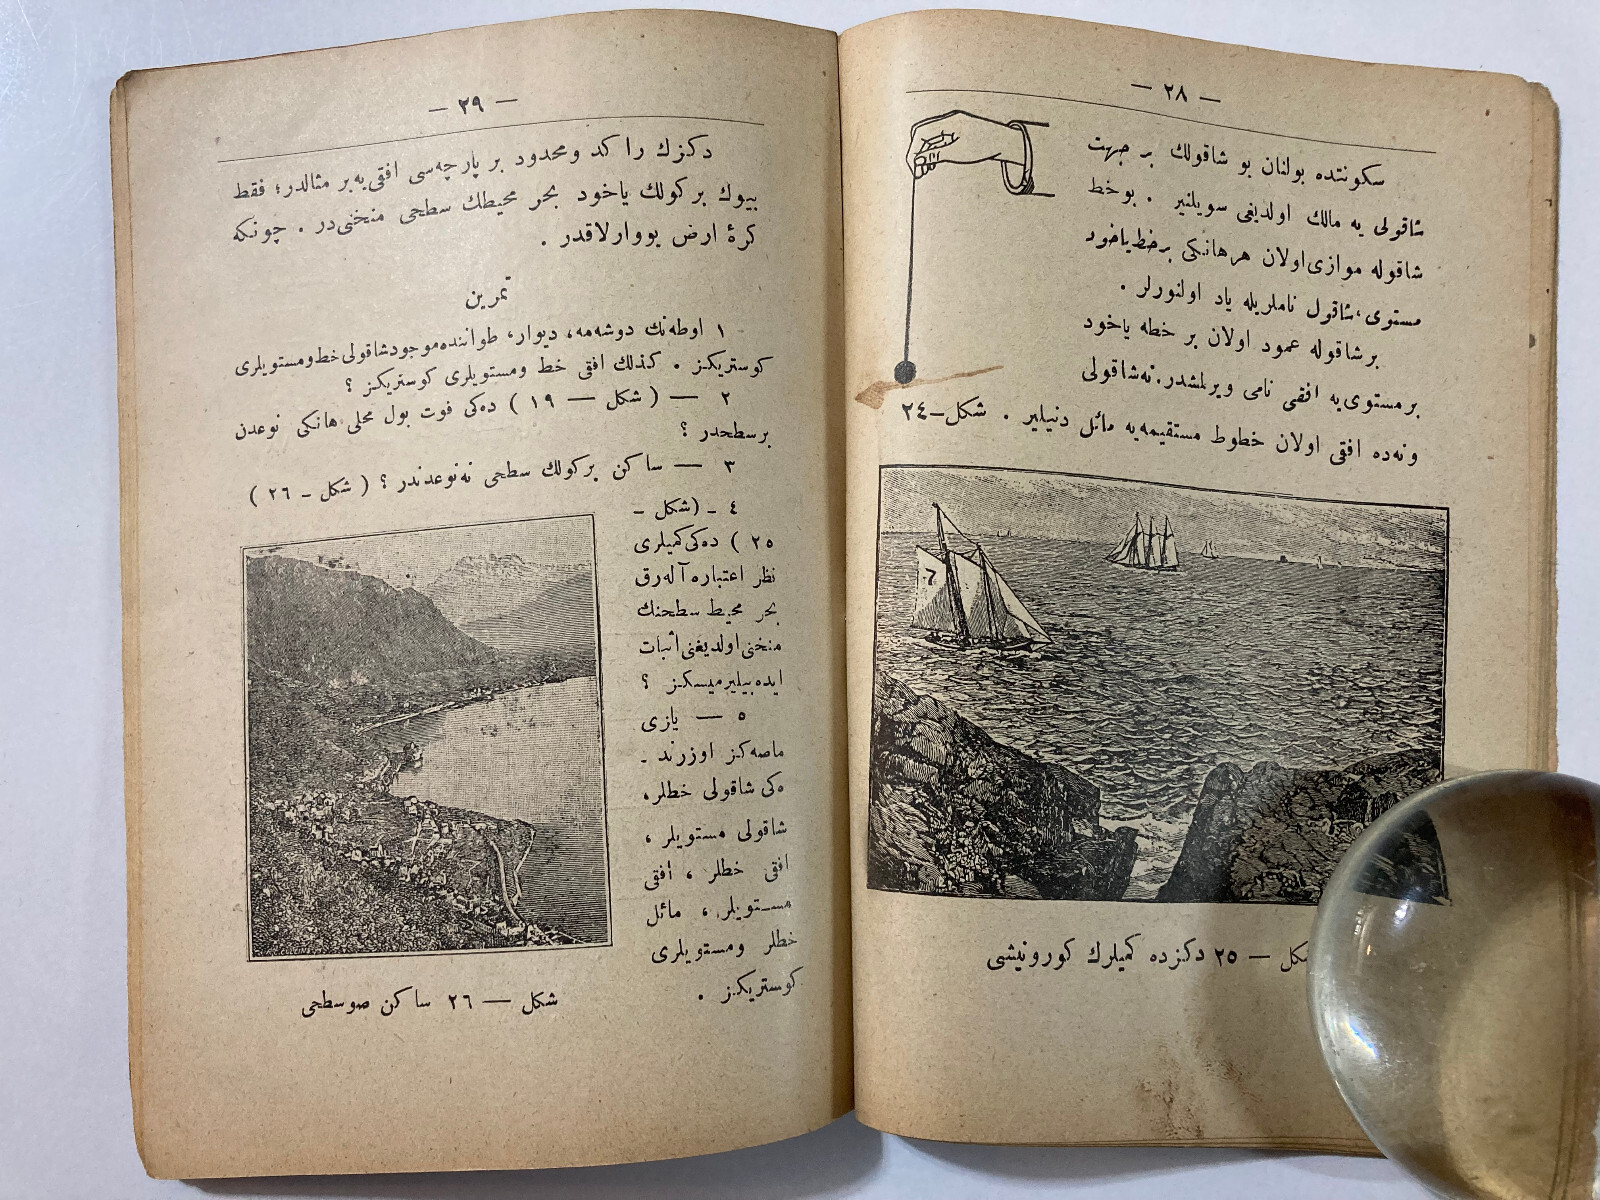 — ٢٨ —
سكونتده بولنان بو شاقولك بر جهت
شاقولی یه مالك اولدیغی سویلنیر . بوخط
شاقوله موازی اولان هرهانكی برخط یاخود
مستوی، شاقول ناملریله یاد اولنورلر .
برشاقوله عمود اولان بر خطه یاخود
برمستوی‌یه افقی نامی ویرلشدر. نه‌شاقولی
ونه‌ده افقی اولان خطوط مستقیمه‌یه مائل دنیلیر . شكل-٢٤
كل — ٢٥ دكزده كمیلرك كورونیشی
— ٢٩ —
دكزك راكد ومحدود بر پارچه‌سی افقی‌یه‌بر مثالدر؛ فقط
بیوك بركولك یاخود بحر محیطك سطحی منحنی‌در . چونكه
كرۀ ارض یووارلاقدر .
تمرین
١ اوطه‌نك دوشه‌مه، دیوار، طواننده‌موجودشاقولی‌خط‌ومستویلری
كوستریكز . كذلك افقی خط ومستویلری كوستریكز ؟
٢ — ( شكل — ١٩ ) ده‌كی فوت بول محلی هانكی نوعدن
برسطحدر ؟
٣ — ساكن بركولك سطحی نه‌نوعدندر ؟ ( شكل - ٢٦ )
٤ - (شكل -
٢٥ ) ده‌كی‌كمیلری
نظر اعتباره آله‌رق
بحر محیط سطحنك
منحنی‌اولدیغنی‌اثبات
ایده‌بیلیرمیسكز ؟
٥ — یازی
ماصه‌كز اوزرند -
ه‌كی شاقولی خطلر،
شاقولی مستویلر ،
افقی خطلر ، افقی
مستویلر ، مائل
خطلر ومستویلری
كوستریكز .
شكل — ٢٦ ساكن صوسطحی